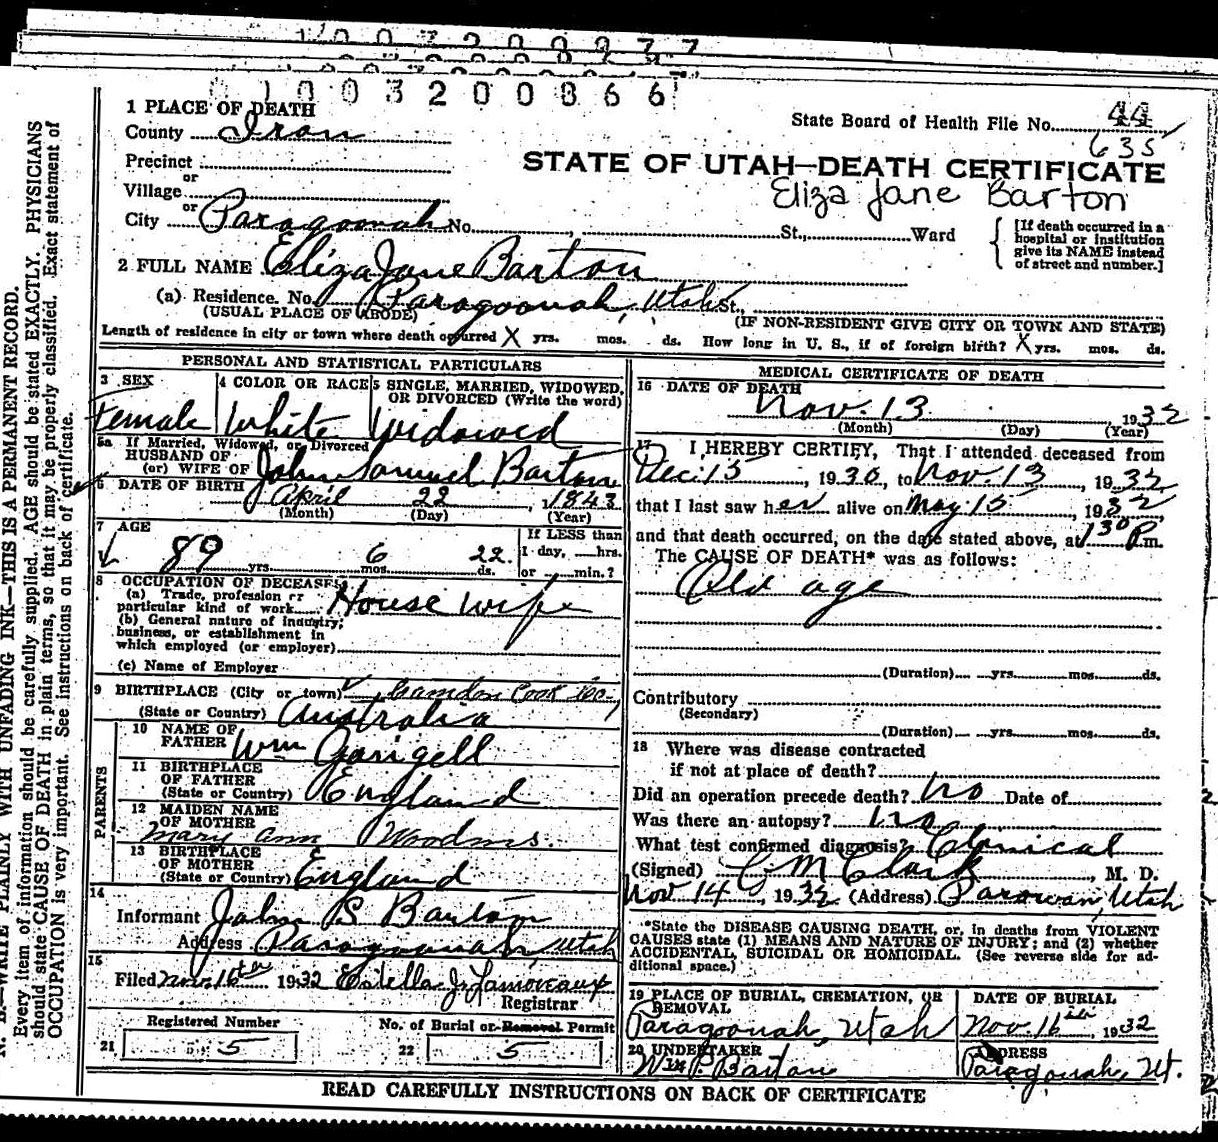 1003200866
1 PLACE OF DEATH
County Iron
State Board of Health File No. 44
635
Precinct
or
STATE OF UTAH—DEATH CERTIFICATE
Village
or
Eliza Jane Barton
City Paragoonah No. , St., Ward
[If death occurred in a hospital or institution give its NAME instead of street and number.]
2 FULL NAME Eliza Jane Barton
(a) Residence. No. Paragoonah, Utah St.,
(USUAL PLACE OF ABODE)
(IF NON-RESIDENT GIVE CITY OR TOWN AND STATE)
Length of residence in city or town where death occurred X yrs. mos. ds. How long in U. S., if of foreign birth? X yrs. mos. ds.
PERSONAL AND STATISTICAL PARTICULARS
3 SEX
Female
4 COLOR OR RACE
White
5 SINGLE, MARRIED, WIDOWED, OR DIVORCED (Write the word)
Widowed
5a If Married, Widowed, or Divorced
HUSBAND OF
(or) WIFE OF John Samuel Barton
6 DATE OF BIRTH
April 22, 1843
(Month) (Day) (Year)
7 AGE
89 yrs 6 mos 22 ds.
If LESS than
1 day, hrs.
or min.?
8 OCCUPATION OF DECEASED
(a) Trade, profession or
particular kind of work House wife
(b) General nature of industry;
business, or establishment in
which employed (or employer)
(c) Name of Employer
9 BIRTHPLACE (City or town) Camdon Cook
(State or Country) Australia
PARENTS
10 NAME OF
FATHER Wm
11 BIRTHPLACE
OF FATHER
(State or Country) England
12 MAIDEN NAME
OF MOTHER
Mary Ann
13 BIRTHPLACE
OF MOTHER
(State or Country) England
14
Informant John S Barton
Address Paragoonah, Utah
15
Filed Nov. 16th 1932 Estella J. Lamoreaux
Registrar
Registered Number
21 5
No. of Burial or Removal Permit
22 5
MEDICAL CERTIFICATE OF DEATH
16 DATE OF DEATH
Nov. 13 1932
(Month) (Day) (Year)
17 I HEREBY CERTIFY, That I attended deceased from
Dec. 15, 1930, to Nov. 13, 1932
that I last saw her alive on May 15, 1932,
and that death occurred, on the date stated above, at 1 30 P.m.
The CAUSE OF DEATH* was as follows:
Old age
(Duration) yrs. mos. ds.
Contributory
(Secondary)
(Duration) yrs. mos. ds.
18 Where was disease contracted
if not at place of death?
Did an operation precede death? no Date of
Was there an autopsy? no
What test confirmed diagnosis? Clinical
(Signed) M Clark, M. D.
Nov 14, 1932 (Address) Parowan, Utah
*State the DISEASE CAUSING DEATH, or, in deaths from VIOLENT
CAUSES state (1) MEANS AND NATURE OF INJURY; and (2) whether
ACCIDENTAL, SUICIDAL OR HOMICIDAL. (See reverse side for ad-
ditional space.)
19 PLACE OF BURIAL, CREMATION, OR
REMOVAL
Paragoonah, Utah
DATE OF BURIAL
Nov. 16th 1932
20 UNDERTAKER
Wm P. Barton
ADDRESS
Paragonah, Ut.
READ CAREFULLY INSTRUCTIONS ON BACK OF CERTIFICATE
N. B.—WRITE PLAINLY WITH UNFADING INK—THIS IS A PERMANENT RECORD.
Every item of information should be carefully supplied. AGE should be stated EXACTLY. PHYSICIANS
should state CAUSE OF DEATH in plain terms, so that it may be properly classified. Exact statement of
OCCUPATION is very important. See instructions on back of certificate.